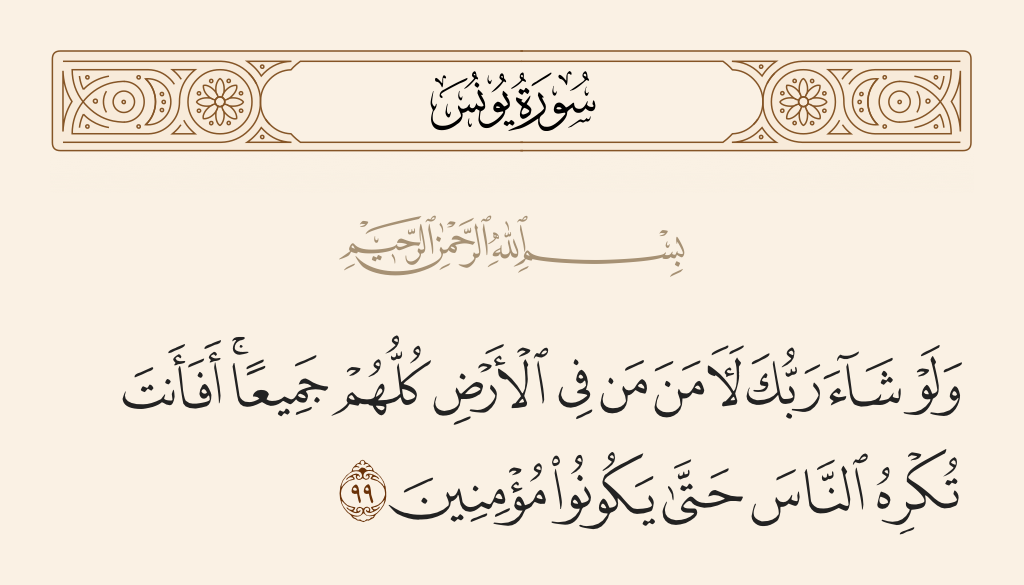 سُورَةُ يُونُسَ
بِسْمِ ٱللَّهِ ٱلرَّحْمَٰنِ ٱلرَّحِيمِ
وَلَوْ شَآءَ رَبُّكَ لَـَٔامَنَ مَن فِى ٱلْأَرْضِ كُلُّهُمْ جَمِيعًا ۚ أَفَأَنتَ
تُكْرِهُ ٱلنَّاسَ حَتَّىٰ يَكُونُوا۟ مُؤْمِنِينَ ٩٩